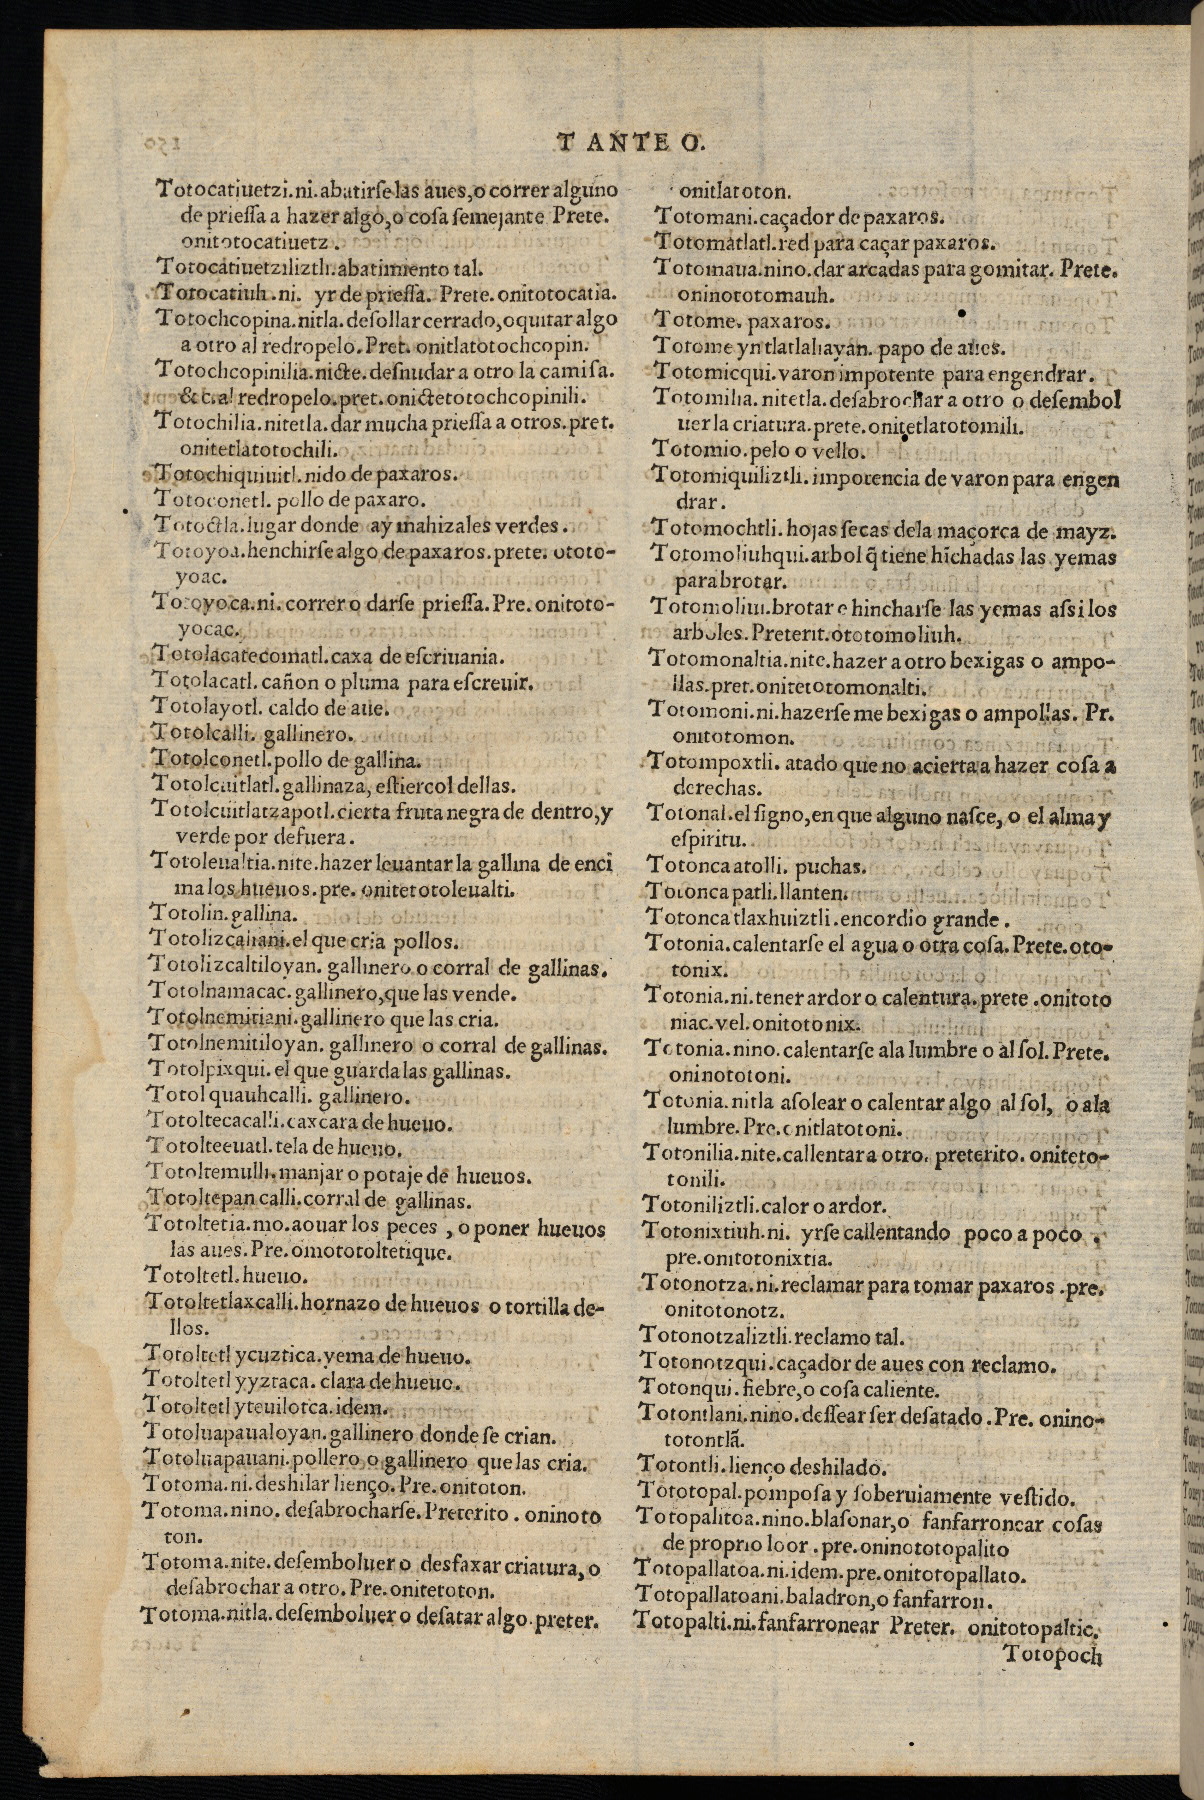 T ANTE O.
Totocatiuetzi.ni.abatirſe las aues,o correr alguno
de prieſſa a hazer algo,o coſa ſemejante Prete.
onitotocatiuetz.
Totocatiuetziliztli.abatimiento tal.
Totocatiuh.ni. yr de prieſſa. Prete.onitotocatia.
Totochcopina.nitla.deſollar cerrado,o quitar algo
a otro al redropelo.Pret. onitlatotochcopin.
Totochcopinilia.nicte.deſnudar a otro la camiſa.
&c.al redropelo.pret.onictetotochcopinili.
Totochilia.nitetla.dar mucha prieſſa a otros.pret.
onitetlatotochili.
Totochiquiuitl.nido de paxaros.
Totoconetl. pollo de paxaro.
Totoctla.lugar donde ay mahizales verdes.
Totoyoa.henchirſe algo de paxaros.prete. ototo-
yoac.
Totoyoca.ni.correr o darſe prieſſa.Pre.onitoto-
yocac.
Totolacatecomatl.caxa de eſcriuania.
Totolacatl.cañon o pluma para eſcreuir.
Totolayotl. caldo de aue.
Totolcalli. gallinero.
Totolconetl.pollo de gallina.
Totolcuitlatl.gallinaza, eſtiercol dellas.
Totolcuitlatzapotl.cierta fruta negra de dentro,y
verde por defuera.
Totoleualtia.nite.hazer leuantar la gallina de enci
ma los hueuos.pre. onitetotoleualti.
Totolin.gallina.
Totolizcaliani.el que cria pollos.
Totolizcaltiloyan. gallinero o corral de gallinas.
Totolnamacac.gallinero,que las vende.
Totolnemitiani.gallinero que las cria.
Totolnemitiloyan. gallinero o corral de gallinas.
Totolpixqui.el que guarda las gallinas.
Totol quauhcalli. gallinero.
Totoltecacalli.caxcara de hueuo.
Totolteeuatl.tela de hueuo.
Totoltemulli.manjar o potaje de hueuos.
Totoltepan calli.corral de gallinas.
Totoltetia.mo.aouar los peces, o poner hueuos
las aues.Pre.omototoltetique.
Totoltetl.hueuo.
Totoltetlaxcalli.hornazo de hueuos o tortilla de-
llos.
Totoltetl ycuztica.yema de hueuo.
Totoltetl yyztaca.clara de hueuo.
Totoltetl yteuilotca.idem.
Totoluapaualoyan.gallinero donde ſe crian.
Totoluapauani.pollero o gallinero que las cria.
Totoma.ni.deshilar lienço.Pre.onitoton.
Totoma.nino. deſabrocharſe.Preterito.oninoto
ton.
Totoma.nite.deſemboluer o desfaxar criatura,o
deſabrochar a otro.Pre.onitetoton.
Totoma.nitla.deſemboluer o deſatar algo.preter.
onitlatoton.
Totomani.caçador de paxaros.
Totomatlatl.red para caçar paxaros.
Totomaua.nino.dar arcadas para gomitar. Prete.
oninototomauh.
Totome. paxaros.
Totome yntlatlaliayan. papo de aues.
Totomicqui.varon impotente para engendrar.
Totomilia. nitetla.deſabrochar a otro o deſembol
uer la criatura.prete.onitetlatotomili.
Totomio.pelo o vello.
Totomiquiliztli.impotencia de varon para engen
drar.
Totomochtli.hojas ſecas dela maçorca de mayz.
Totomoliuhqui.arbol q̃ tiene hĩchadas las yemas
para brotar.
Totomoliui.brotar o hincharſe las yemas aſsi los
arboles.Preterit.ototomoliuh.
Totomonaltia.nite.hazer a otro bexigas o ampo-
llas.pret.onitetotomonalti.
Totomoni.ni.hazerſeme bexigas o ampollas. Pr.
onitotomon.
Totompoxtli. atado que no acierta a hazer coſa a
derechas.
Totonal.el ſigno,en que alguno naſce,o el alma y
eſpiritu.
Totonca atolli. puchas.
Totonca patli.llanten.
Totonca tlaxhuiztli.encordio grande.
Totonia.calentarſe el agua o otra coſa.Prete.oto-
tonix.
Totonia.ni.tener ardor o calentura.prete.onitoto
niac.vel.onitotonix.
Totonia.nino.calentarſe ala lumbre o al ſol.Prete.
oninototoni.
Totonia.nitla aſolear o calentar algo al ſol, o ala
lumbre.Pre.onitlatotoni.
Totonilia.nite.callentar a otro. preterito. oniteto-
tonili.
Totoniliztli.calor o ardor.
Totonixtiuh.ni. yrſe callentando poco a poco.
pre.onitotonixtia.
Totonotza.ni.reclamar para tomar paxaros.pre.
onitotonotz.
Totonotzaliztli.reclamo tal.
Totonotzqui.caçador de aues con reclamo.
Totonqui.fiebre,o coſa caliente.
Totontlani.nino.deſſear ſer deſatado.Pre. onino-
totontlã.
Totontli.lienço deshilado.
Tototopal.pompoſa y ſoberuiamente veſtido.
Totopalitoa.nino.blaſonar,o fanfarronear coſas
de proprio loor.pre.oninototopalito
Totopallatoa.ni.idem.pre.onitotopallato.
Totopallatoani.baladron,o fanfarron.
Totopalti.ni.fanfarronear Preter. onitotopaltic.
Totopoch